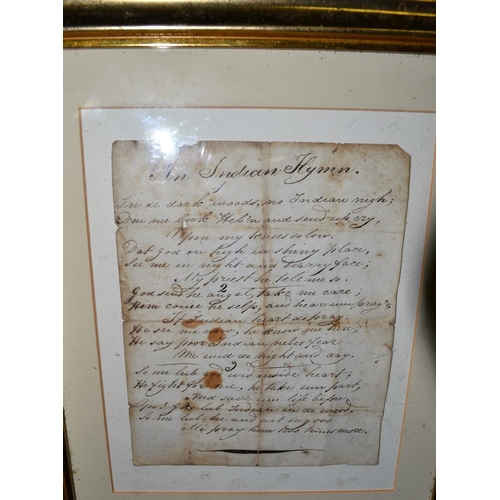 An Indian Hymn.
In de dark woods, no Indian nigh;
Den me look Heb'n and send up cry,
Upon my knees so low.
Dat God on high in shiny place,
See me in night and teary face;
My priest he tell me so.
2
God send he angel, take me care;
Him come he self, and hear um pray'r
If Indian heart do pray.
He see me now, he know me here;
He say poor Indian neber fear
Me wid de night and day.
3
So me lub God wid inside heart;
He fight for me, he take um part,
And save um life before.
God lub Indian in de wood;
So me lub he and dat be good
Me pray him two times more.